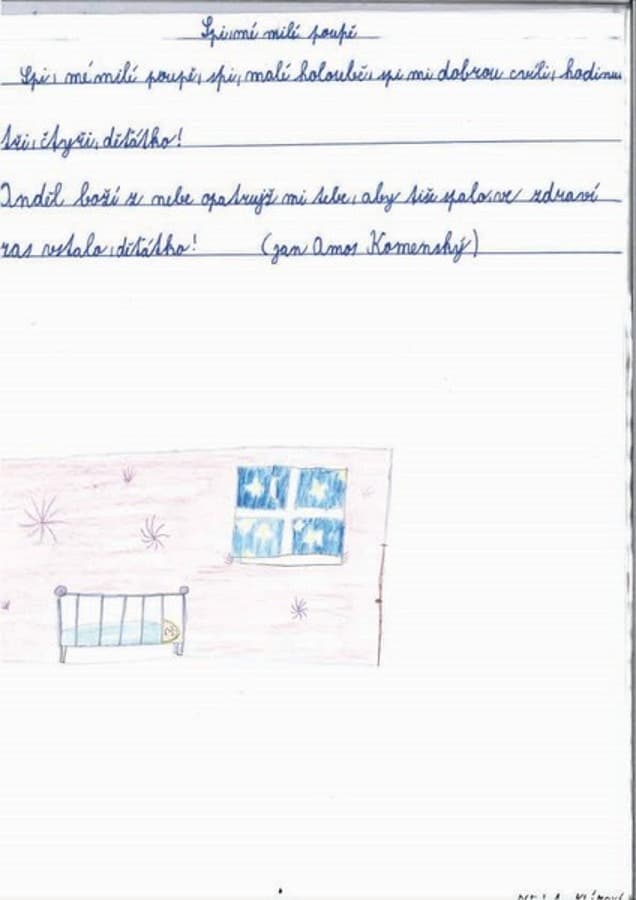 Spi, mé milé poupě
Spi, mé milé poupě, spi, malé holoubě, spi mi dobrou chvíli, hodinu
tři, čtyři, děťátko!
Anděl boží z nebe opatrujž mi tebe, aby tiše spalo, ve zdraví
zas vstalo, děťátko! (Jan Amos Komenský)